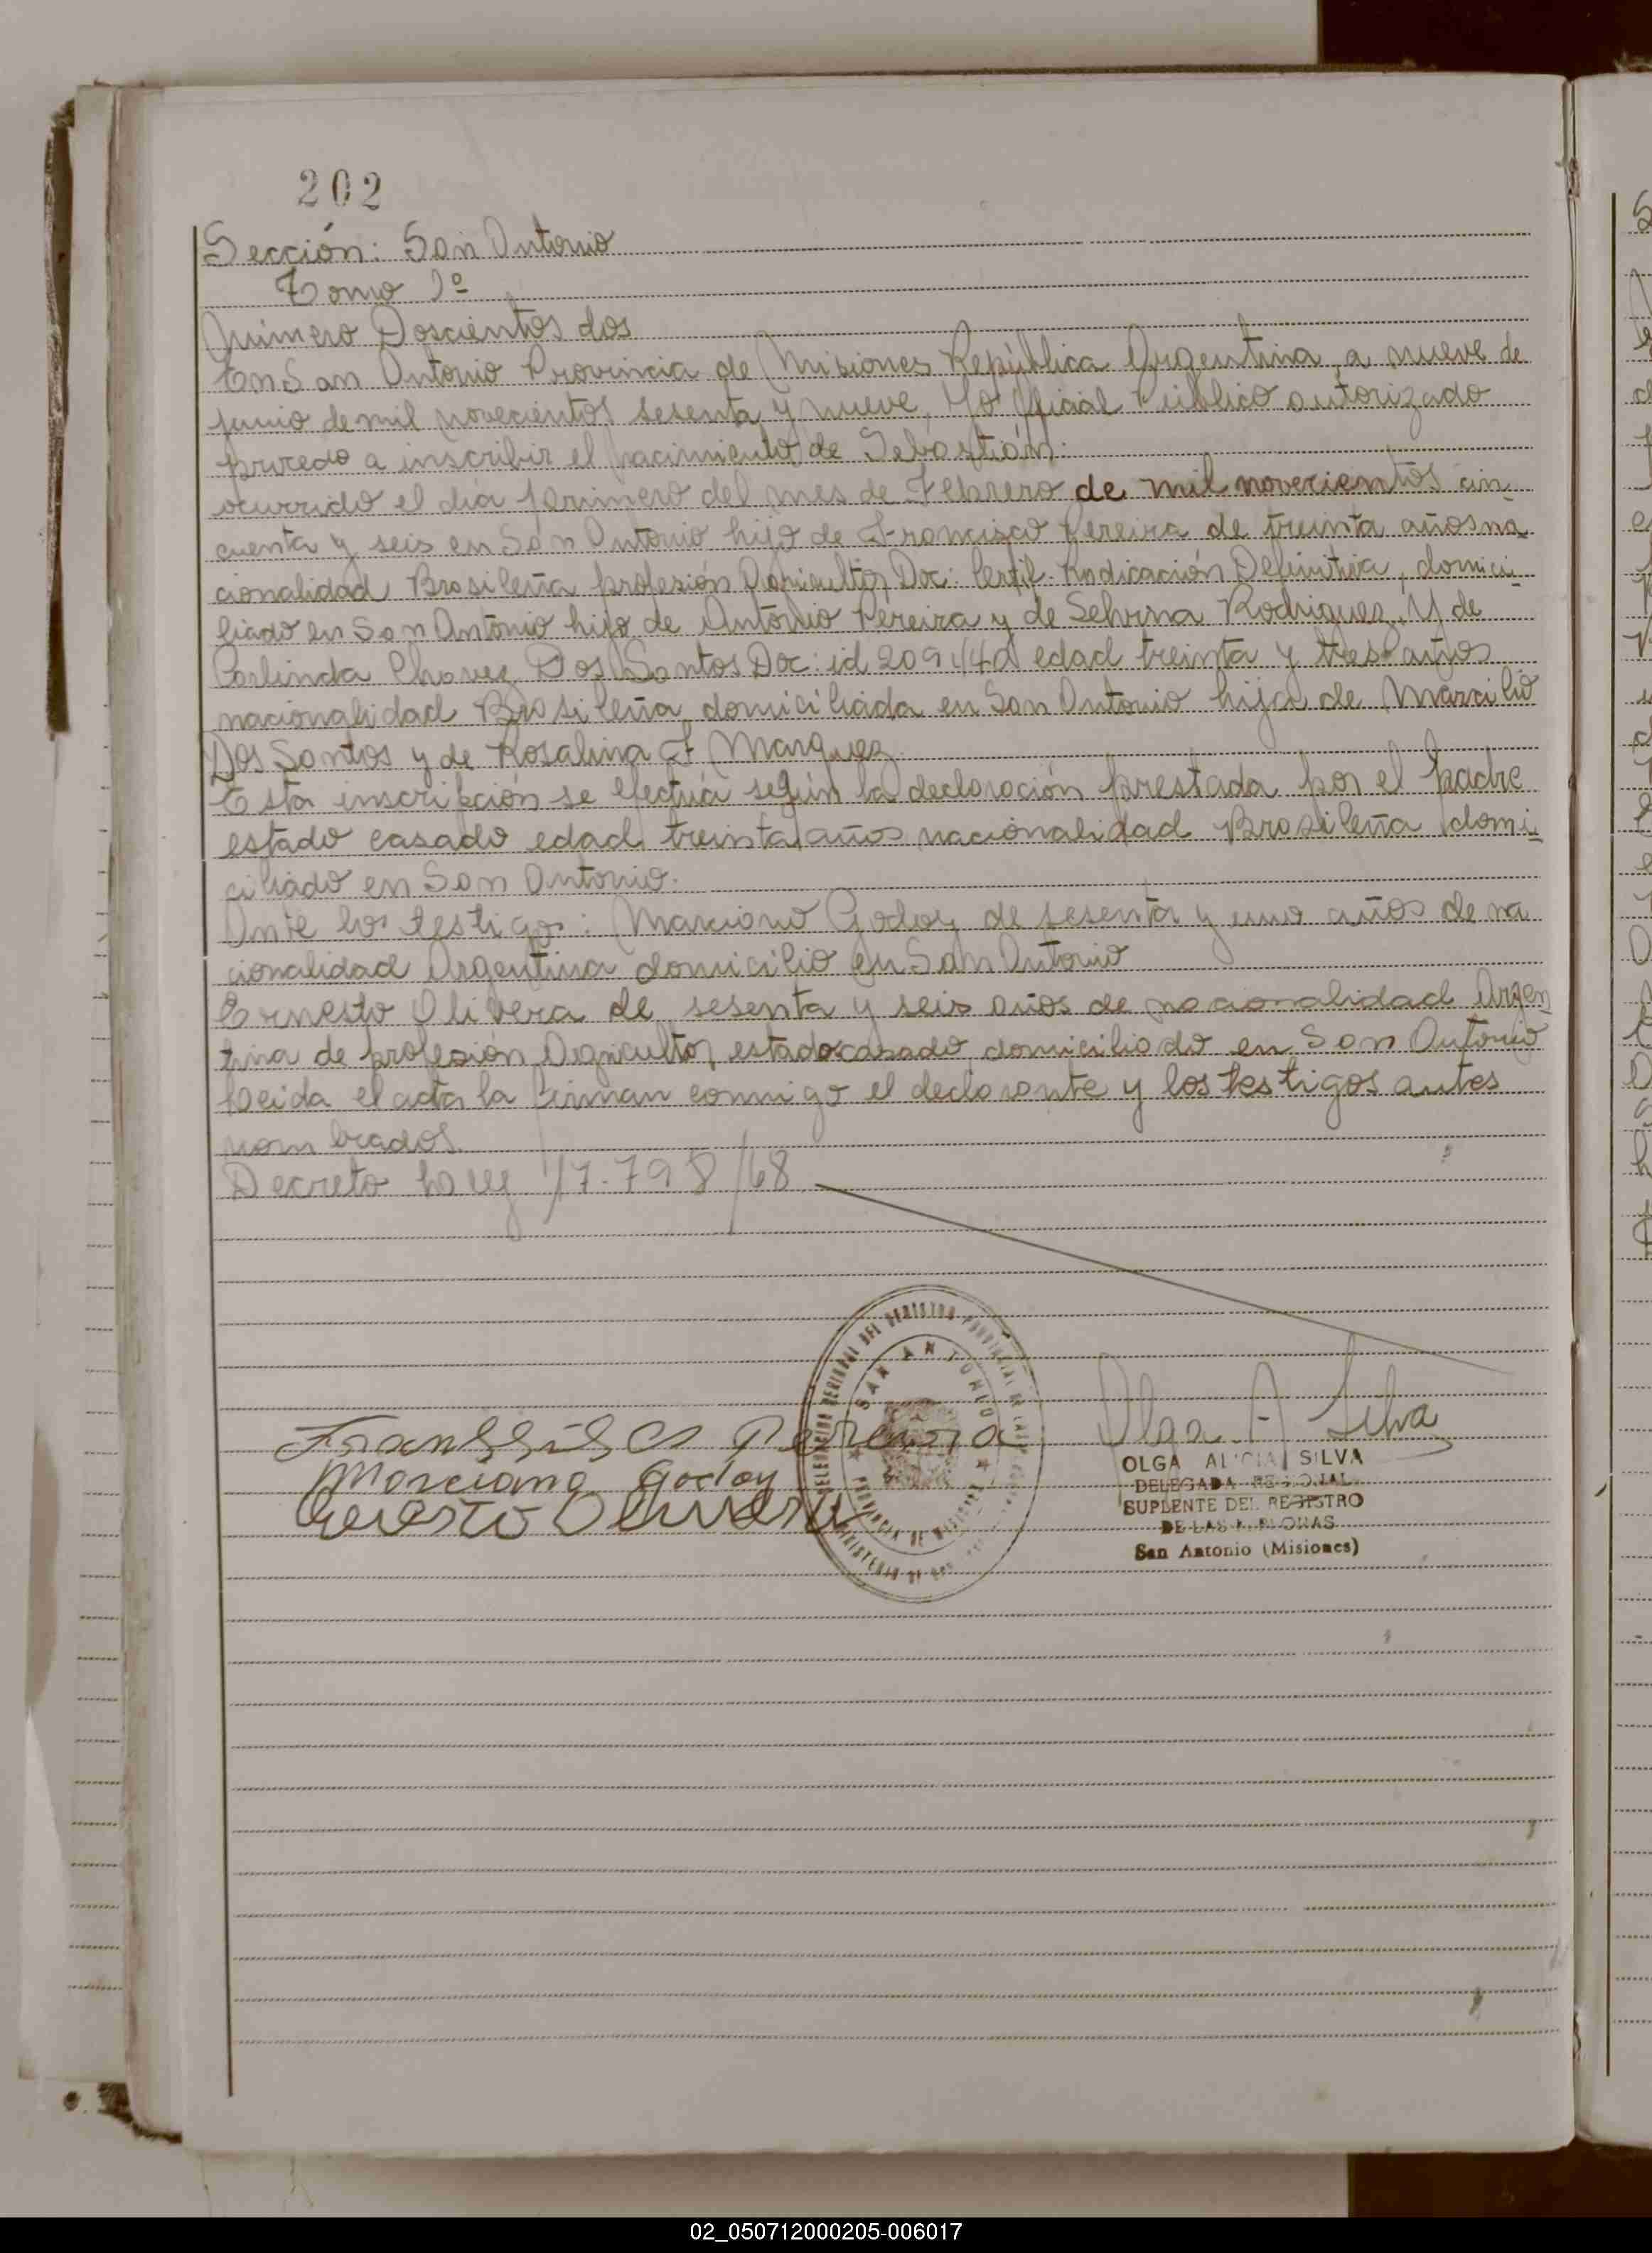 202
Sección: San Antonio
Tomo 1º
Número Doscientos dos
En San Antonio Provincia de Misiones República Argentina, a nueve de
junio de mil novecientos sesenta y nueve, Yo Oficial Público autorizado
procedo a inscribir el nacimiento de Sebastián.
ocurrido el día primero del mes de Febrero de mil novecientos cin
cuenta y seis en San Antonio hijo de Francisco Pereira de treinta años na
cionalidad Brasileña profesión Agricultor Doc: Certif. Radicación Definitiva, domici
liado en San Antonio hijo de Antonio Pereira y de Selvina Rodriguez. Y de
Carlinda Chavez Dos Santos Doc: id edad treinta y tres años
nacionalidad Brasileña domiciliada en San Antonio hija de Marcilio
Dos Santos y de Rosalina F. Marquez
Esta inscripción se efectúa según la declaración prestada por el padre
estado casado edad treinta años nacionalidad Brasileña domi
ciliado en San Antonio.
Ante los testigos: Marciano Godoy de sesenta y uno años de na
cionalidad Argentina domicilio en San Antonio
Ernesto Olivera de sesenta y seis años de nacionalidad Argen
tina de profesión Agricultor, estado casado domiciliado en San Antonio
Leida el acta la firman conmigo el declarante y los testigos antes
nombrados.
Decreto Ley 17.798/68
SAN ANTONIO
PROVINCIA DE MISIONES
Pereira
Marciano Godoy
Olivera
Olga A Silva
OLGA ALICIA SILVA
DELEGADA REGIONAL
SUPLENTE DEL REGISTRO
DE LAS PERSONAS
San Antonio (Misiones)
02_050712000205-006017